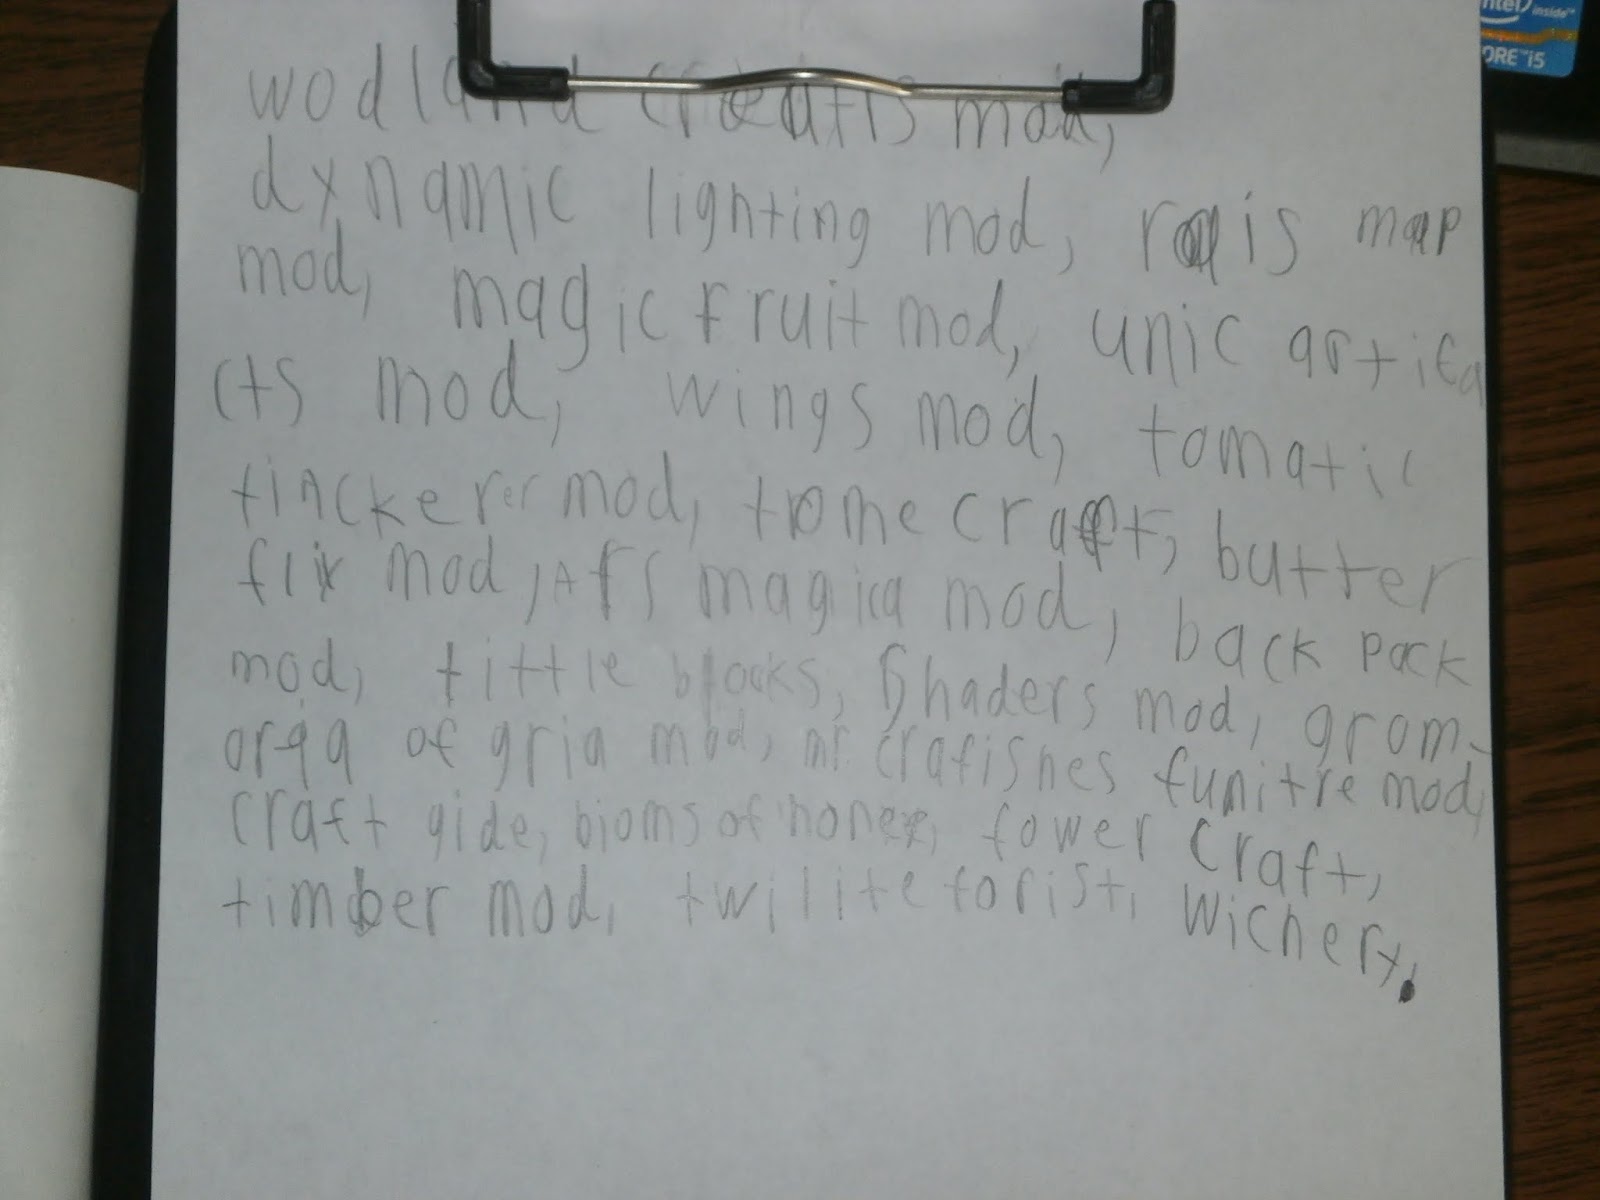 wodland creatis mod,
dynamic lighting mod, rais map
mod, magic fruit mod, unic artifa
cts mod, wings mod, tomatic
tinckerer mod, tome craft, butter
flix mod, Ars magica mod, back pack
mod, tittle blocks, Shaders mod, grom-
orga of gria mod, mr. crafishes funitre mod,
craft gide, bioms of honey, tower craft,
timber mod, twilite forist, wichery.
intel inside™
CORE™ i5